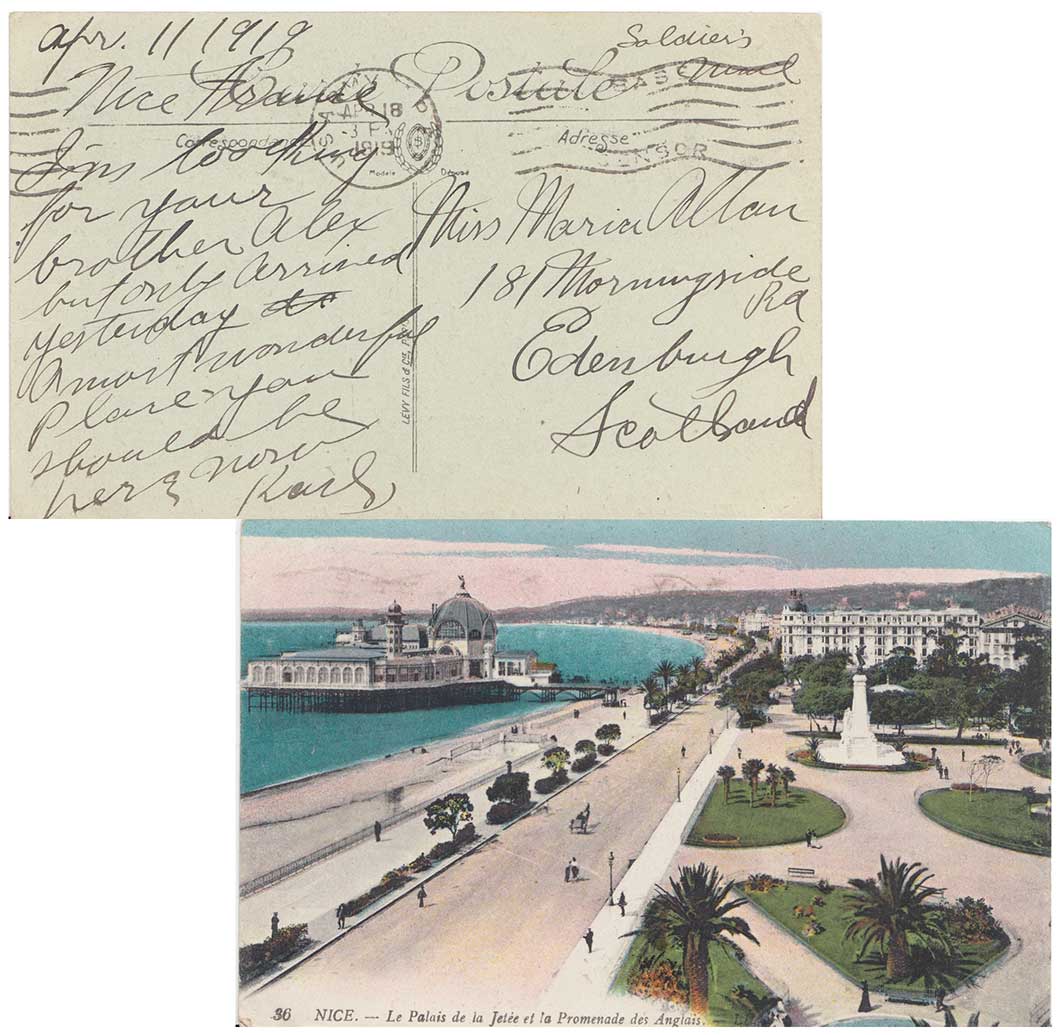 Apr. 11 1919
Soldier's
Mail
Nice France
Carte Postale
Correspondance
Adresse
APR 18
3 P
1919
$
NSOR
Modèle Déposé
LEVY FILS & Cie, P
Jim looking
for your
brother Alex
but only arrived
yesterday
A most wonderful
Place you
should be
here now
Miss Maria Allan
181 Morningside
Rd
Edenburgh
Scotland
36 NICE. — Le Palais de la Jetée et la Promenade des Anglais. — LL